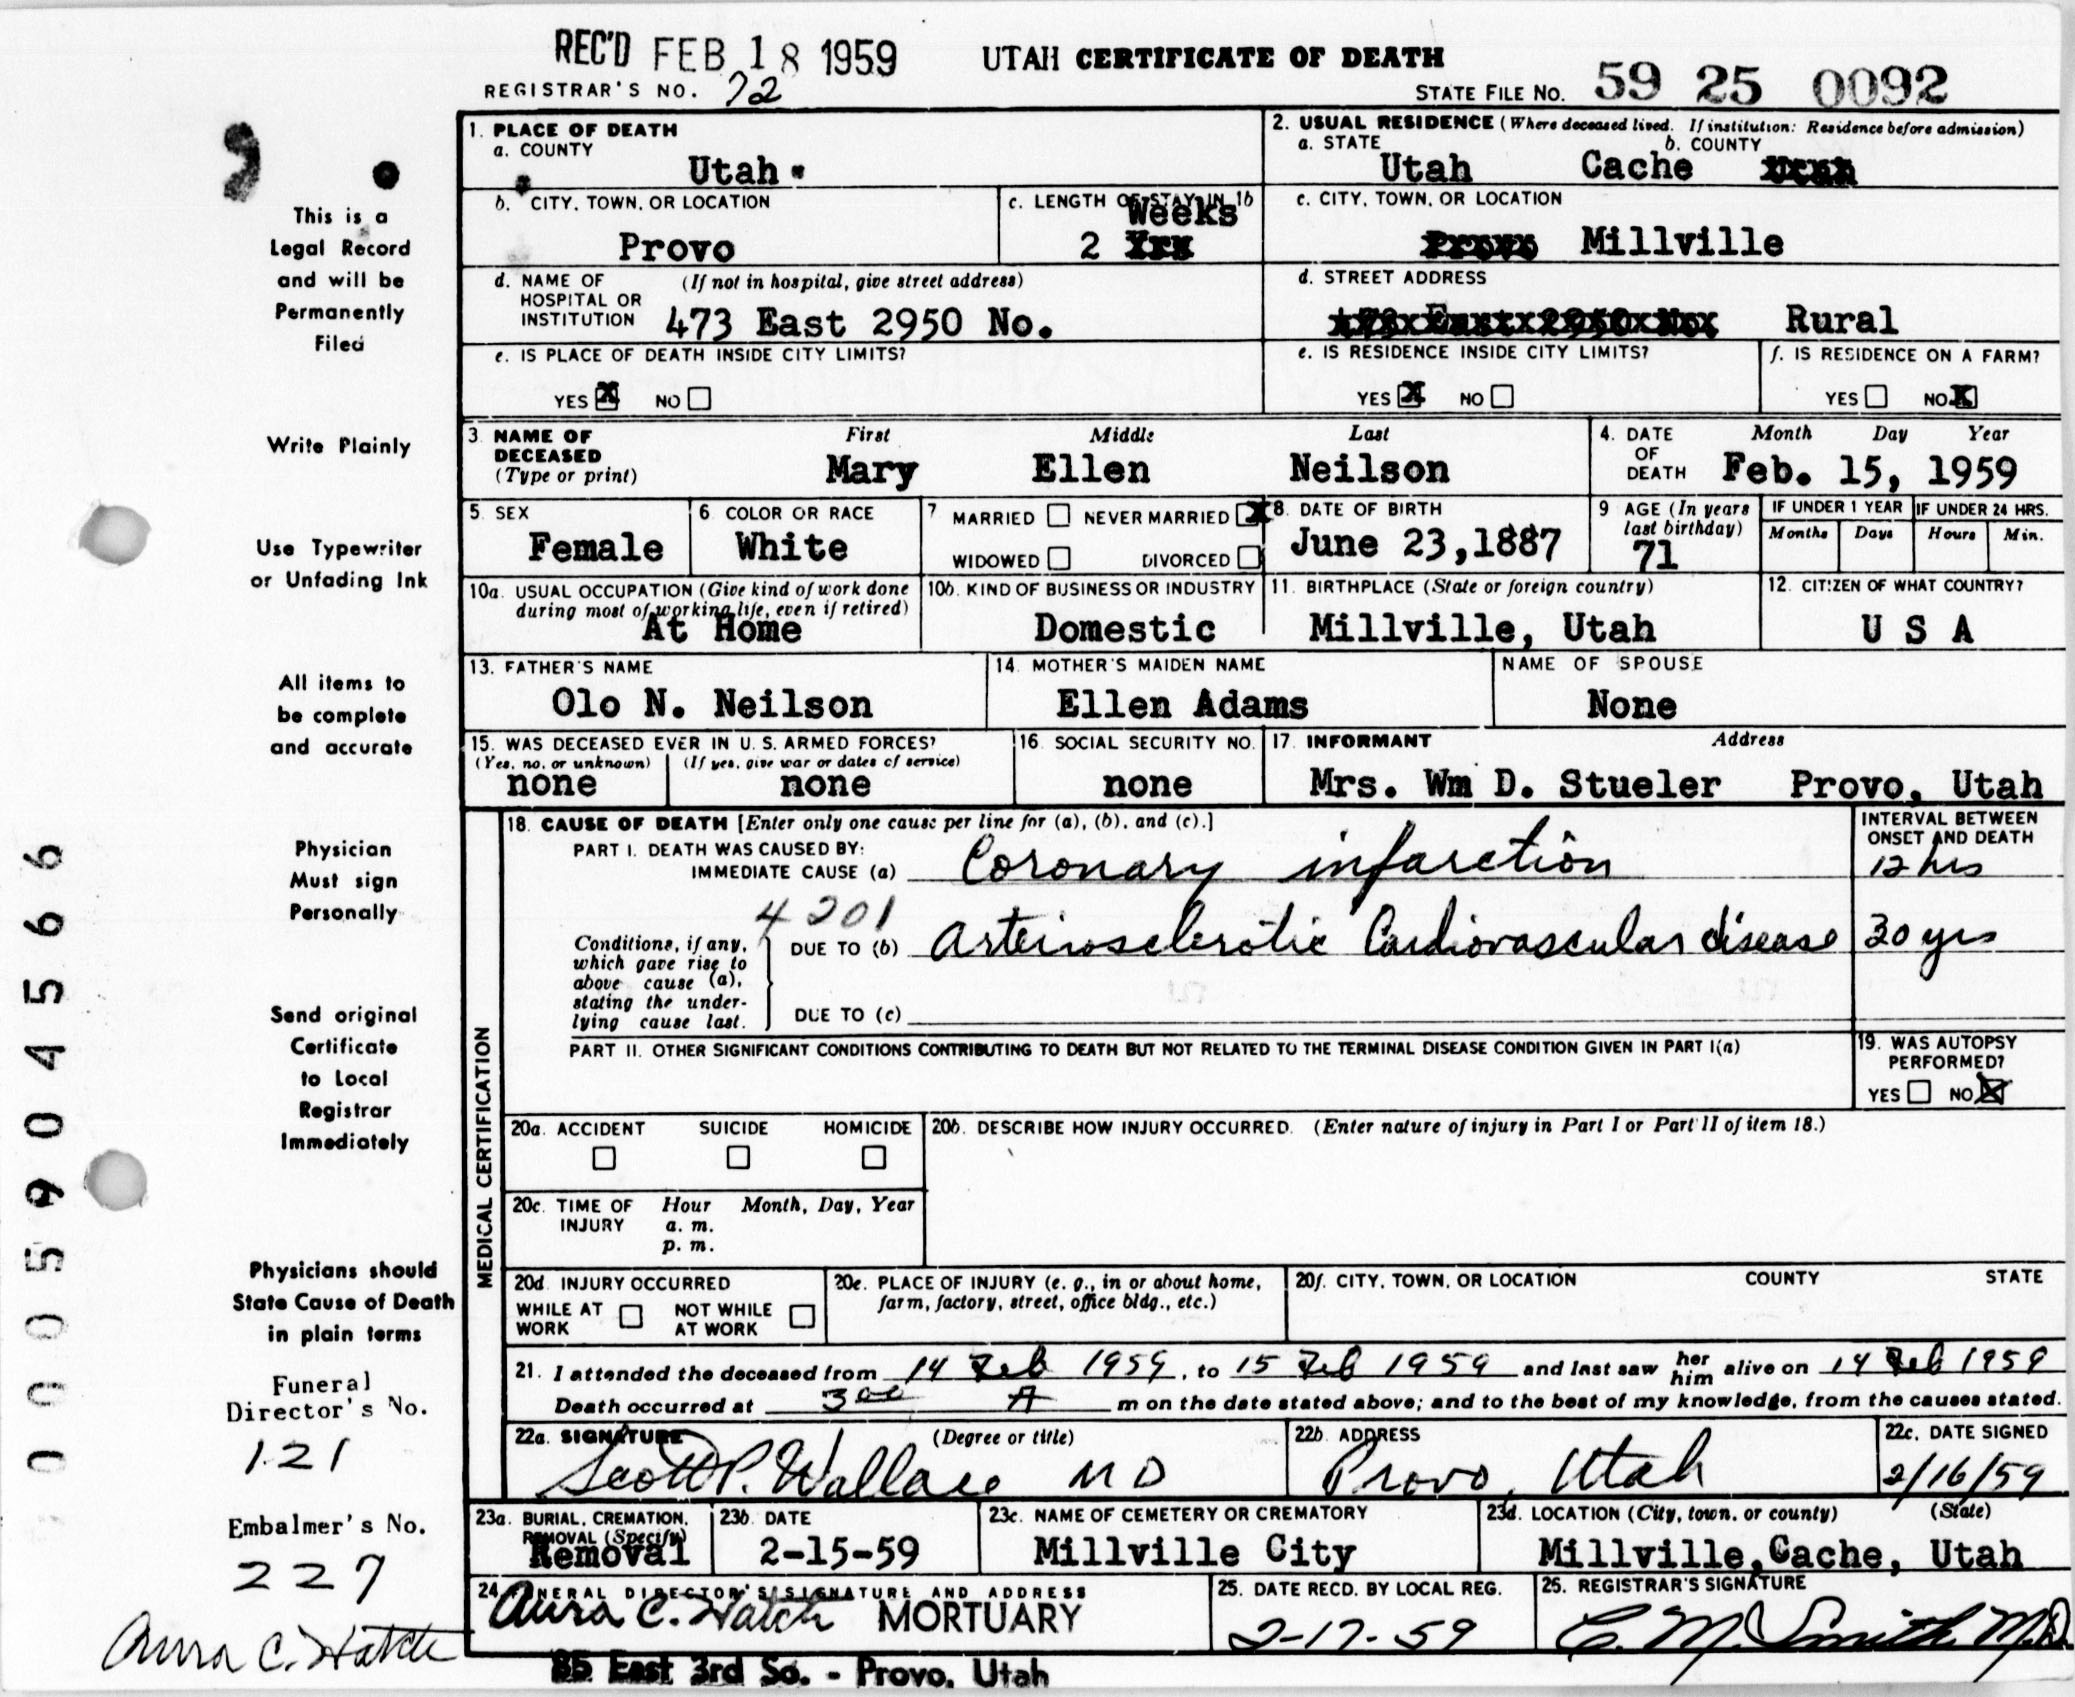 REC'D FEB 18 1959 UTAH CERTIFICATE OF DEATH
REGISTRAR'S NO. 72 STATE FILE NO. 59 25 0092
1. PLACE OF DEATH
a. COUNTY
Utah
2. USUAL RESIDENCE (Where deceased lived. If institution: Residence before admission)
a. STATE b. COUNTY
Utah Cache Utah
b. CITY, TOWN, OR LOCATION
Provo
c. LENGTH OF STAY IN 1b
Weeks
2 Yrs
c. CITY, TOWN, OR LOCATION
Provo Millville
d. NAME OF (If not in hospital, give street address)
HOSPITAL OR
INSTITUTION 473 East 2950 No.
d. STREET ADDRESS
473 East 2950 No Rural
e. IS PLACE OF DEATH INSIDE CITY LIMITS?
YES X NO
e. IS RESIDENCE INSIDE CITY LIMITS?
YES X NO
f. IS RESIDENCE ON A FARM?
YES NO X
3. NAME OF DECEASED (Type or print) First Middle Last
Mary Ellen Neilson
4. DATE OF DEATH Month Day Year
Feb. 15, 1959
5. SEX
Female
6. COLOR OR RACE
White
7. MARRIED NEVER MARRIED X
WIDOWED DIVORCED
8. DATE OF BIRTH
June 23, 1887
9. AGE (In years last birthday)
71
IF UNDER 1 YEAR IF UNDER 24 HRS.
Months Days Hours Min.
10a. USUAL OCCUPATION (Give kind of work done
during most of working life, even if retired)
At Home
10b. KIND OF BUSINESS OR INDUSTRY
Domestic
11. BIRTHPLACE (State or foreign country)
Millville, Utah
12. CITIZEN OF WHAT COUNTRY?
U S A
13. FATHER'S NAME
Olo N. Neilson
14. MOTHER'S MAIDEN NAME
Ellen Adams
NAME OF SPOUSE
None
15. WAS DECEASED EVER IN U. S. ARMED FORCES?
(Yes, no, or unknown) (If yes, give war or dates of service)
none none
16. SOCIAL SECURITY NO.
none
17. INFORMANT Address
Mrs. Wm D. Stueler Provo, Utah
MEDICAL CERTIFICATION
18. CAUSE OF DEATH [Enter only one cause per line for (a), (b), and (c).]
INTERVAL BETWEEN
ONSET AND DEATH
PART I. DEATH WAS CAUSED BY:
IMMEDIATE CAUSE (a) Coronary infarction 12 hrs
4201
Conditions, if any,
which gave rise to
above cause (a),
stating the under-
lying cause last.
DUE TO (b) Arteriosclerotic Cardiovascular disease 30 yrs
DUE TO (c)
PART II. OTHER SIGNIFICANT CONDITIONS CONTRIBUTING TO DEATH BUT NOT RELATED TO THE TERMINAL DISEASE CONDITION GIVEN IN PART I(a)
19. WAS AUTOPSY
PERFORMED?
YES NO X
20a. ACCIDENT SUICIDE HOMICIDE
20b. DESCRIBE HOW INJURY OCCURRED. (Enter nature of injury in Part I or Part II of item 18.)
20c. TIME OF INJURY Hour Month, Day, Year
a. m.
p. m.
20d. INJURY OCCURRED
WHILE AT WORK NOT WHILE AT WORK
20e. PLACE OF INJURY (e. g., in or about home,
farm, factory, street, office bldg., etc.)
20f. CITY, TOWN, OR LOCATION COUNTY STATE
21. I attended the deceased from 14 Feb 1959, to 15 Feb 1959 and last saw her him alive on 14 Feb 1959
Death occurred at 3 00 A m on the date stated above; and to the best of my knowledge, from the causes stated.
22a. SIGNATURE (Degree or title)
Scott P. Wallace M D
22b. ADDRESS
Provo, Utah
22c. DATE SIGNED
2/16/59
23a. BURIAL, CREMATION,
REMOVAL (Specify)
Removal
23b. DATE
2-15-59
23c. NAME OF CEMETERY OR CREMATORY
Millville City
23d. LOCATION (City, town, or county) (State)
Millville, Cache, Utah
24. FUNERAL DIRECTOR'S SIGNATURE AND ADDRESS
Aura C. Hatch MORTUARY
85 East 3rd So. - Provo, Utah
25. DATE RECD. BY LOCAL REG.
2-17-59
25. REGISTRAR'S SIGNATURE
C. M. Smith M.D.
This is a
Legal Record
and will be
Permanently
Filed
Write Plainly
Use Typewriter
or Unfading Ink
All items to
be complete
and accurate
Physician
Must sign
Personally
Send original
Certificate
to Local
Registrar
Immediately
Physicians should
State Cause of Death
in plain terms
Funeral
Director's No.
121
Embalmer's No.
227
Aura C. Hatch
0005904566